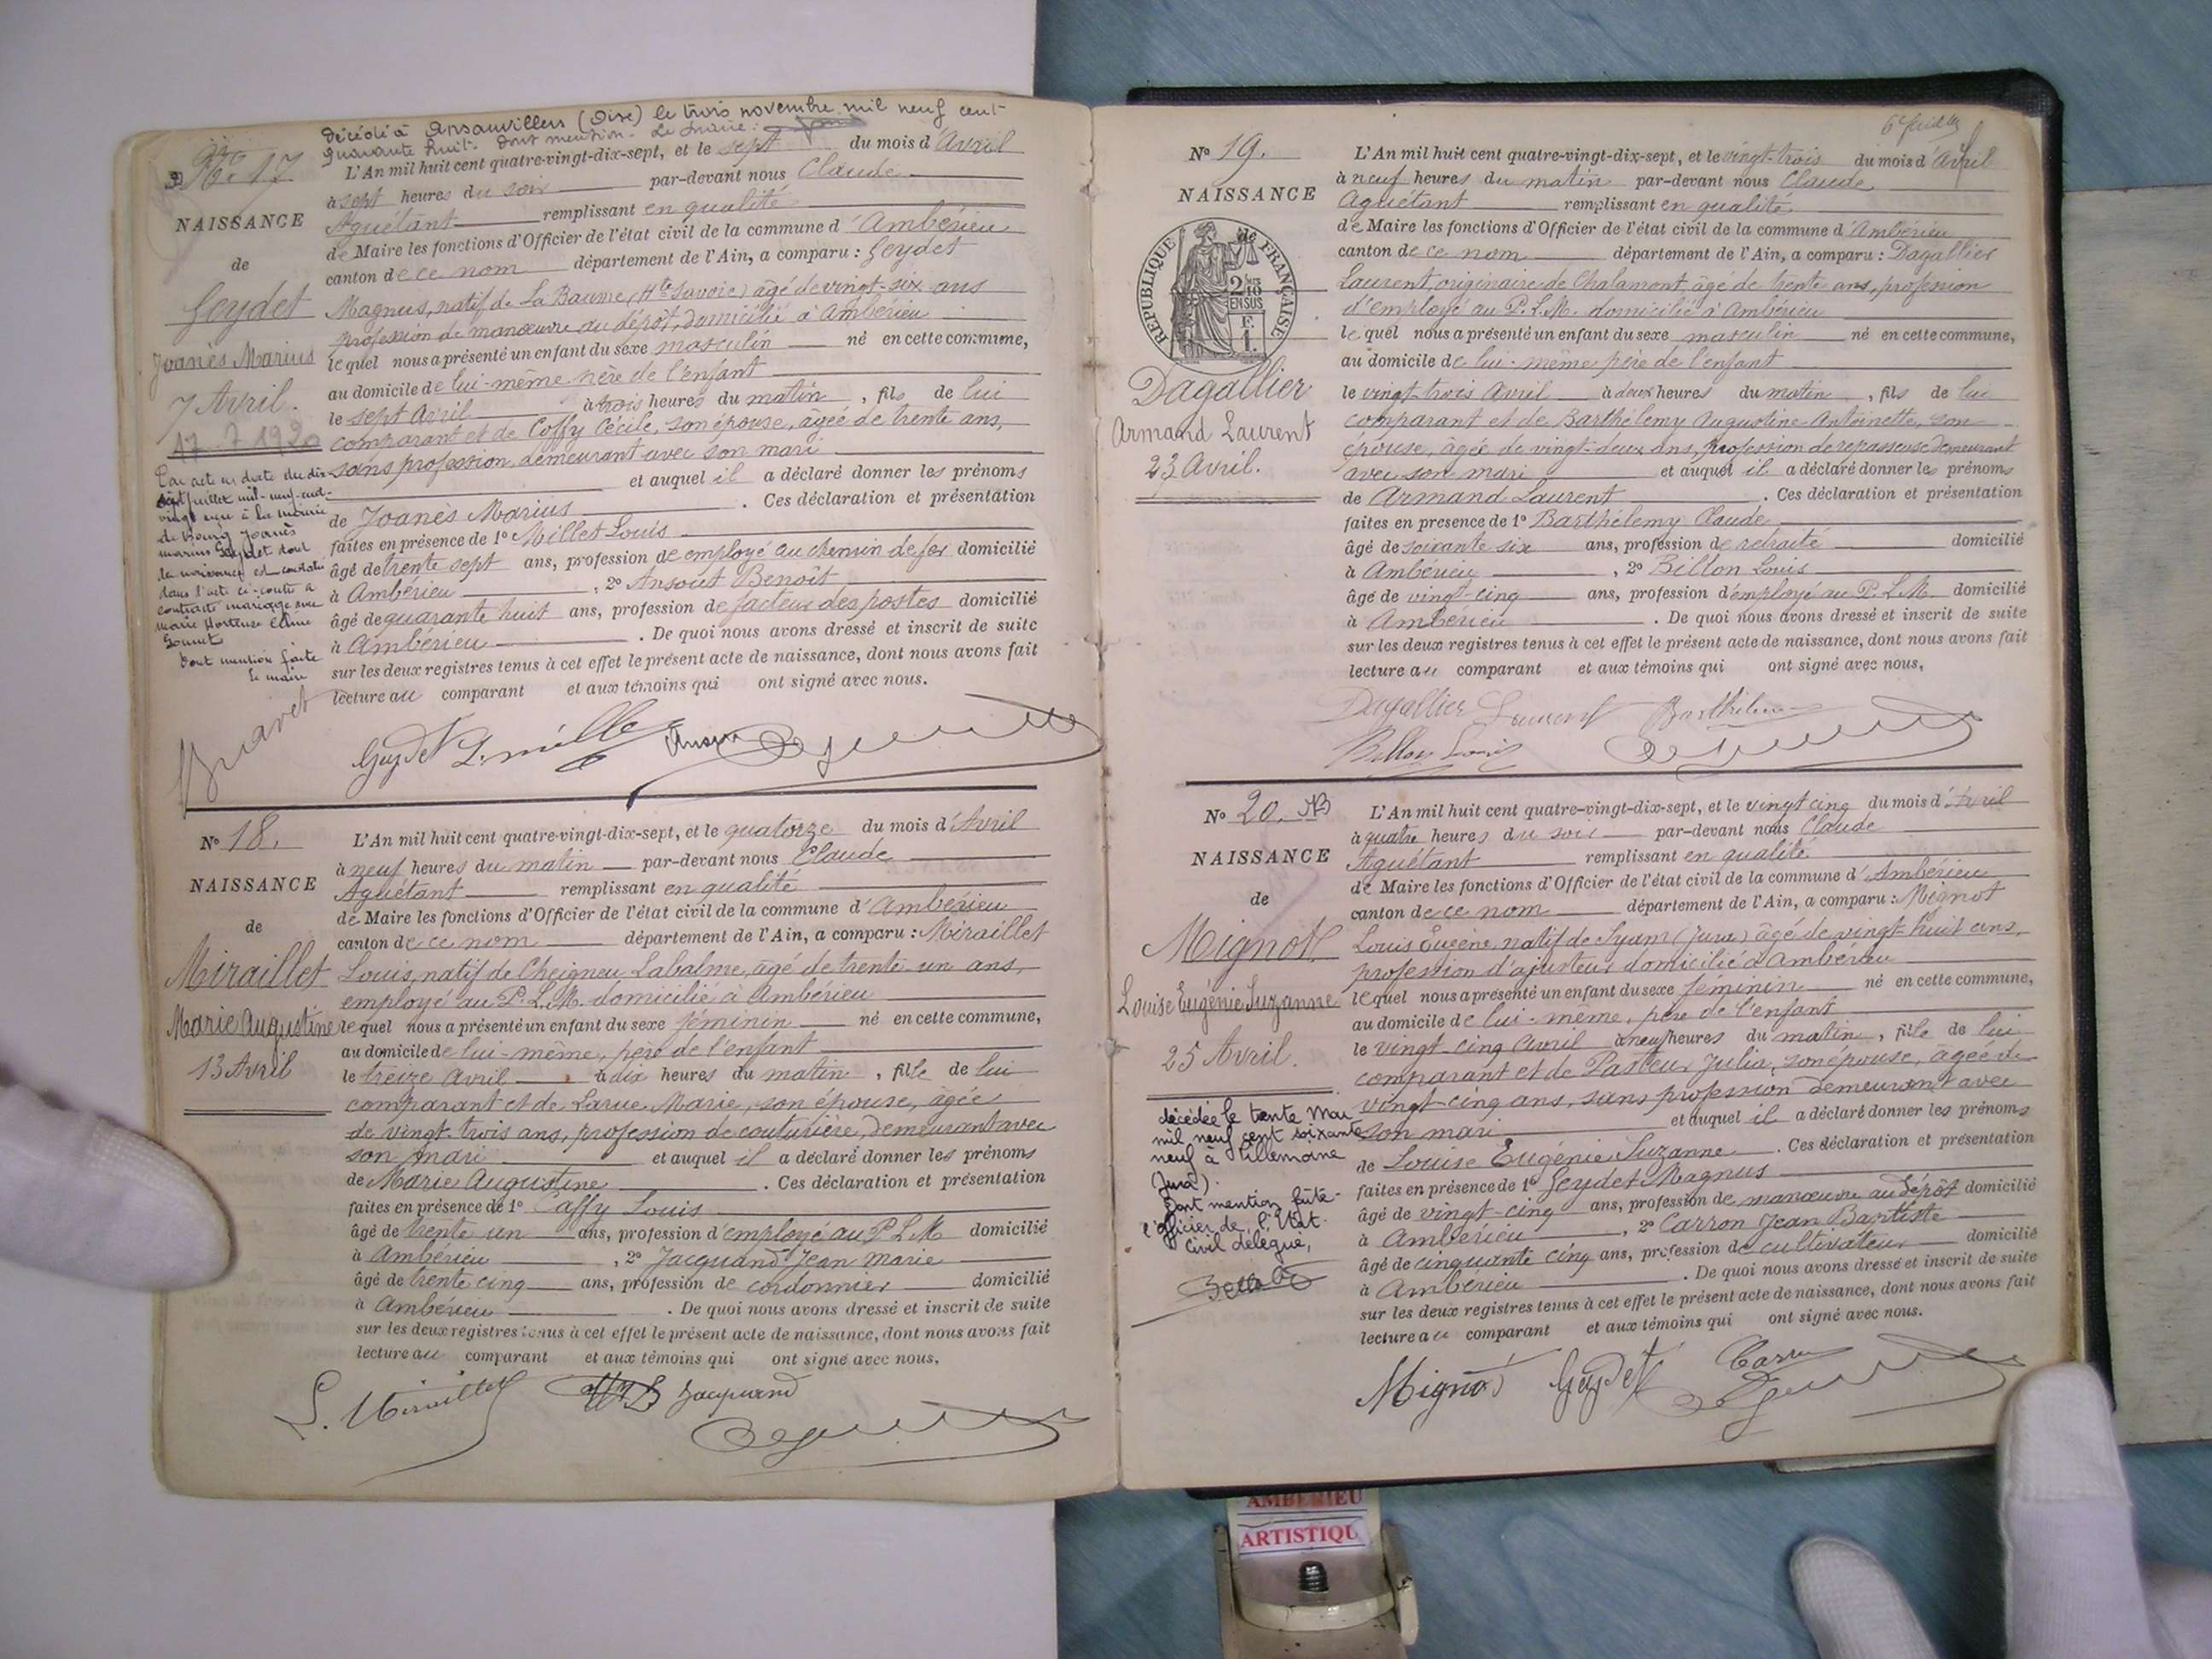 décédé à Ansauvillers (Oise) le trois novembre mil neuf cent
quarante huit. Dont mention. Le Maire:
No 17
NAISSANCE
de
Geydet
Joanès Marius
7 Avril.
17-7 1920
Par acte en date du dix
sept juillet mil-neuf-cent-
vingt reçu à la mairie
de Bourg Joanès
Marius Geydet dont
la naissance est constatée
dans l'acte ci-contre a
contracté mariage avec
Marie Hortense
Dont mention faite
Le maire
L'An mil huit cent quatre-vingt-dix-sept, et le sept du mois d'Avril
à sept heures du soir par-devant nous Claude
Aguétant remplissant en qualité
de Maire les fonctions d'Officier de l'état civil de la commune d'Ambérieu
canton de ce nom département de l'Ain, a comparu : Geydet
Magnus, natif de La Baume, (Hte Savoie) âgé de vingt-six ans
profession de manœuvre au dépôt, domicilié à Ambérieu
lequel nous a présenté un enfant du sexe masculin né en cette commune,
au domicile de lui-même père de l'enfant
le sept Avril à trois heures du matin, fils de lui
comparant et de Coffy Cécile, son épouse, âgée de trente ans,
sans profession, demeurant avec son mari
et auquel il a déclaré donner les prénoms
de Joanès Marius. Ces déclaration et présentation
faites en présence de 1° Millet Louis
âgé de trente sept ans, profession de employé au chemin de fer domicilié
à Ambérieu, 2° Ansoud Benoît
âgé de quarante huit ans, profession de facteur des postes domicilié
à Ambérieu. De quoi nous avons dressé et inscrit de suite
sur les deux registres tenus à cet effet le présent acte de naissance, dont nous avons fait
lecture au comparant et aux témoins qui ont signé avec nous.
Geydet L. Millet
No 18.
NAISSANCE
de
Miraillet
Marie Augustine
13 Avril
L'An mil huit cent quatre-vingt-dix-sept, et le quatorze du mois d'Avril
à neuf heures du matin par-devant nous Claude
Aguétant remplissant en qualité
de Maire les fonctions d'Officier de l'état civil de la commune d'Ambérieu
canton de ce nom département de l'Ain, a comparu : Miraillet
Louis, natif de Cheigneu Labalme, âgé de trente un ans,
employé au P.L.M. domicilié à Ambérieu
lequel nous a présenté un enfant du sexe féminin né en cette commune,
au domicile de lui-même, père de l'enfant
le treize Avril à dix heures du matin, fille de lui
comparant et de Larue Marie, son épouse, âgée
de vingt-trois ans, profession de couturière, demeurant avec
son mari et auquel il a déclaré donner les prénoms
de Marie Augustine. Ces déclaration et présentation
faites en présence de 1° Caffy Louis
âgé de trente un ans, profession d'employé au P L M domicilié
à Ambérieu, 2° Jacquand Jean Marie
âgé de trente cinq ans, profession de cordonnier domicilié
à Ambérieu. De quoi nous avons dressé et inscrit de suite
sur les deux registres tenus à cet effet le présent acte de naissance, dont nous avons fait
lecture au comparant et aux témoins qui ont signé avec nous.
L. Miraillet Jacquand
6e feuillet
No 19.
NAISSANCE
de
RÉPUBLIQUE FRANÇAISE
2/10 EN SUS
Dagallier
Armand Laurent
23 Avril.
L'An mil huit cent quatre-vingt-dix-sept, et le vingt-trois du mois d'Avril
à neuf heures du matin par-devant nous Claude
Aguétant remplissant en qualité
de Maire les fonctions d'Officier de l'état civil de la commune d'Ambérieu
canton de ce nom département de l'Ain, a comparu : Dagallier
Laurent, originaire de Chalamont, âgé de trente ans, profession
d'employé au P.L.M. domicilié à Ambérieu
lequel nous a présenté un enfant du sexe masculin né en cette commune,
au domicile de lui-même père de l'enfant
le vingt-trois Avril à deux heures du matin, fils de lui
comparant et de Barthélemy Augustine Antoinette, son
épouse, âgée de vingt-deux ans, profession de repasseuse demeurant
avec son mari et auquel il a déclaré donner les prénoms
de Armand Laurent. Ces déclaration et présentation
faites en presence de 1° Barthélemy Claude
âgé de soixante six ans, profession de retraité domicilié
à Ambérieu, 2° Billon Louis
âgé de vingt-cinq ans, profession d'employé au P.L.M. domicilié
à Ambérieu. De quoi nous avons dressé et inscrit de suite
sur les deux registres tenus à cet effet le présent acte de naissance, dont nous avons fait
lecture au comparant et aux témoins qui ont signé avec nous,
Dagallier Laurent
Billon Louis
No 20.
NAISSANCE
de
Mignot
Louise Eugénie Suzanne
25 Avril.
décédée le trente Mai
mil neuf cent soixante
neuf à Tillemoine
Jura).
Dont mention faite-
l'officier de l'Etat
Civil délégué,
L'An mil huit cent quatre-vingt-dix-sept, et le vingt cinq du mois d'Avril
à quatre heures du soir par-devant nous Claude
Aguétant remplissant en qualité
de Maire les fonctions d'Officier de l'état civil de la commune d'Ambérieu
canton de ce nom département de l'Ain, a comparu : Mignot
Louis Eugène, natif de Syam (Jura) âgé de vingt huit ans,
profession d'ajusteur domicilié à Ambérieu
lequel nous a présenté un enfant du sexe féminin né en cette commune,
au domicile de lui-même, père de l'enfant
le vingt-cinq Avril à neuf heures du matin, fille de lui
comparant et de Pasteur Julia, son épouse, âgée de
vingt-cinq ans, sans profession demeurant avec
son mari et auquel il a déclaré donner les prénoms
de Louise Eugénie Suzanne. Ces déclaration et présentation
faites en présence de 1° Geydet Magnus
âgé de vingt-cinq ans, profession de manœuvre au dépôt domicilié
à Ambérieu, 2° Carron Jean Baptiste
âgé de cinquante cinq ans, profession de cultivateur domicilié
à Ambérieu. De quoi nous avons dressé et inscrit de suite
sur les deux registres tenus à cet effet le présent acte de naissance, dont nous avons fait
lecture au comparant et aux témoins qui ont signé avec nous.
Mignot Geydet
AMBERIEU
ARTISTIQU